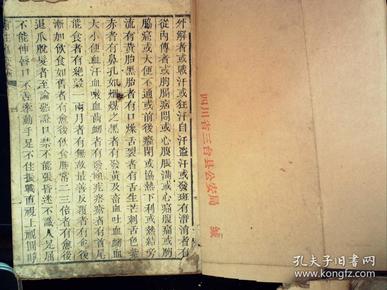 外解者或戰汗或狂汗自汗盜汗或發斑有潰消者有
從內傳者或胸膈痛悶或心腹脹滿或心痛腹痛或胸
脇痛或大便不通或前後癃閉或協熱下利或熱結旁
流有黃胎黑胎者有口燥舌裂者有舌生芒刺舌色紫
赤者有鼻孔如煙煤之黑者有發黃及畜血吐血衄血
大小便血汗血嗽血齒衄者有發頤疙瘩瘡者有首尾
能食者有絕穀一兩月者有無故最善反復者有愈後
漸加飲食如舊者有愈後飲食勝常二三倍者有愈後
退爪脫髮者至論惡證口噤不能張昏迷不識人足屈
不能伸唇口不住牽動手足不住振戰直視上視圓睜
四川省三台县公安局 缄
孔夫子旧书网